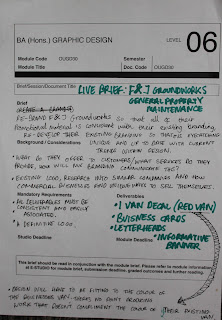 BA (Hons.) GRAPHIC DESIGN
LEVEL 06
Module Code OUGD30
Semester
Module Title
Doc. Code OUGD30
Brief/Session/Document Title
LIVE BRIEF: F&J GROUNDWORKS
GENERAL PROPERTY
MAINTENANCE
Brief
CREATE A
RE-BRAND F&J Groundworks SO that all of their
Promotional material is consistent with their existing branding.
RE-DESIGN THEIR EXISTING BRANDING SO THAT IT'S
Background / Considerations
UNIQUE AND UP TO DATE WITH CURRENT
TRENDS WITHIN DESIGN.
• WHAT DO THEY OFFER TO CUSTOMERS/WHAT SERVICES DO THEY
PROVIDE, HOW WILL THE BRANDING COMMUNICATE THIS?
• EXISTING LOGO, RESEARCH INTO SIMILAR COMPANIES AND HOW
COMMERCIAL BUSINESSES AND VEHICLES TRY TO SELL THEMSELVES.
Mandatory Requirements
Deliverables
• ALL DELIVERABLES MUST BE
CONSISTENT AND EASILY
ASSOCIATED.
• A DEFINITIVE LOGO.
• 1 VAN DECAL (RED VAN)
• BUISNESS CARDS
• LETTERHEADS
• INFORMATIVE
BANNER
Studio Deadline
Module Deadline
This brief should be read in conjunction with the module brief. Please refer to module information
at E-STUDIO for module brief, submission deadline, graded outcomes and further reading.
• DESIGN WILL HAVE TO BE FITTING TO THE COLOUR OF
THE BUISNESSES VAN. THERE'S NO POINT PRODUCING
WORK THAT DOESN'T COMPLIMENT THE COLOUR OF THEIR EXISTING
VAN.